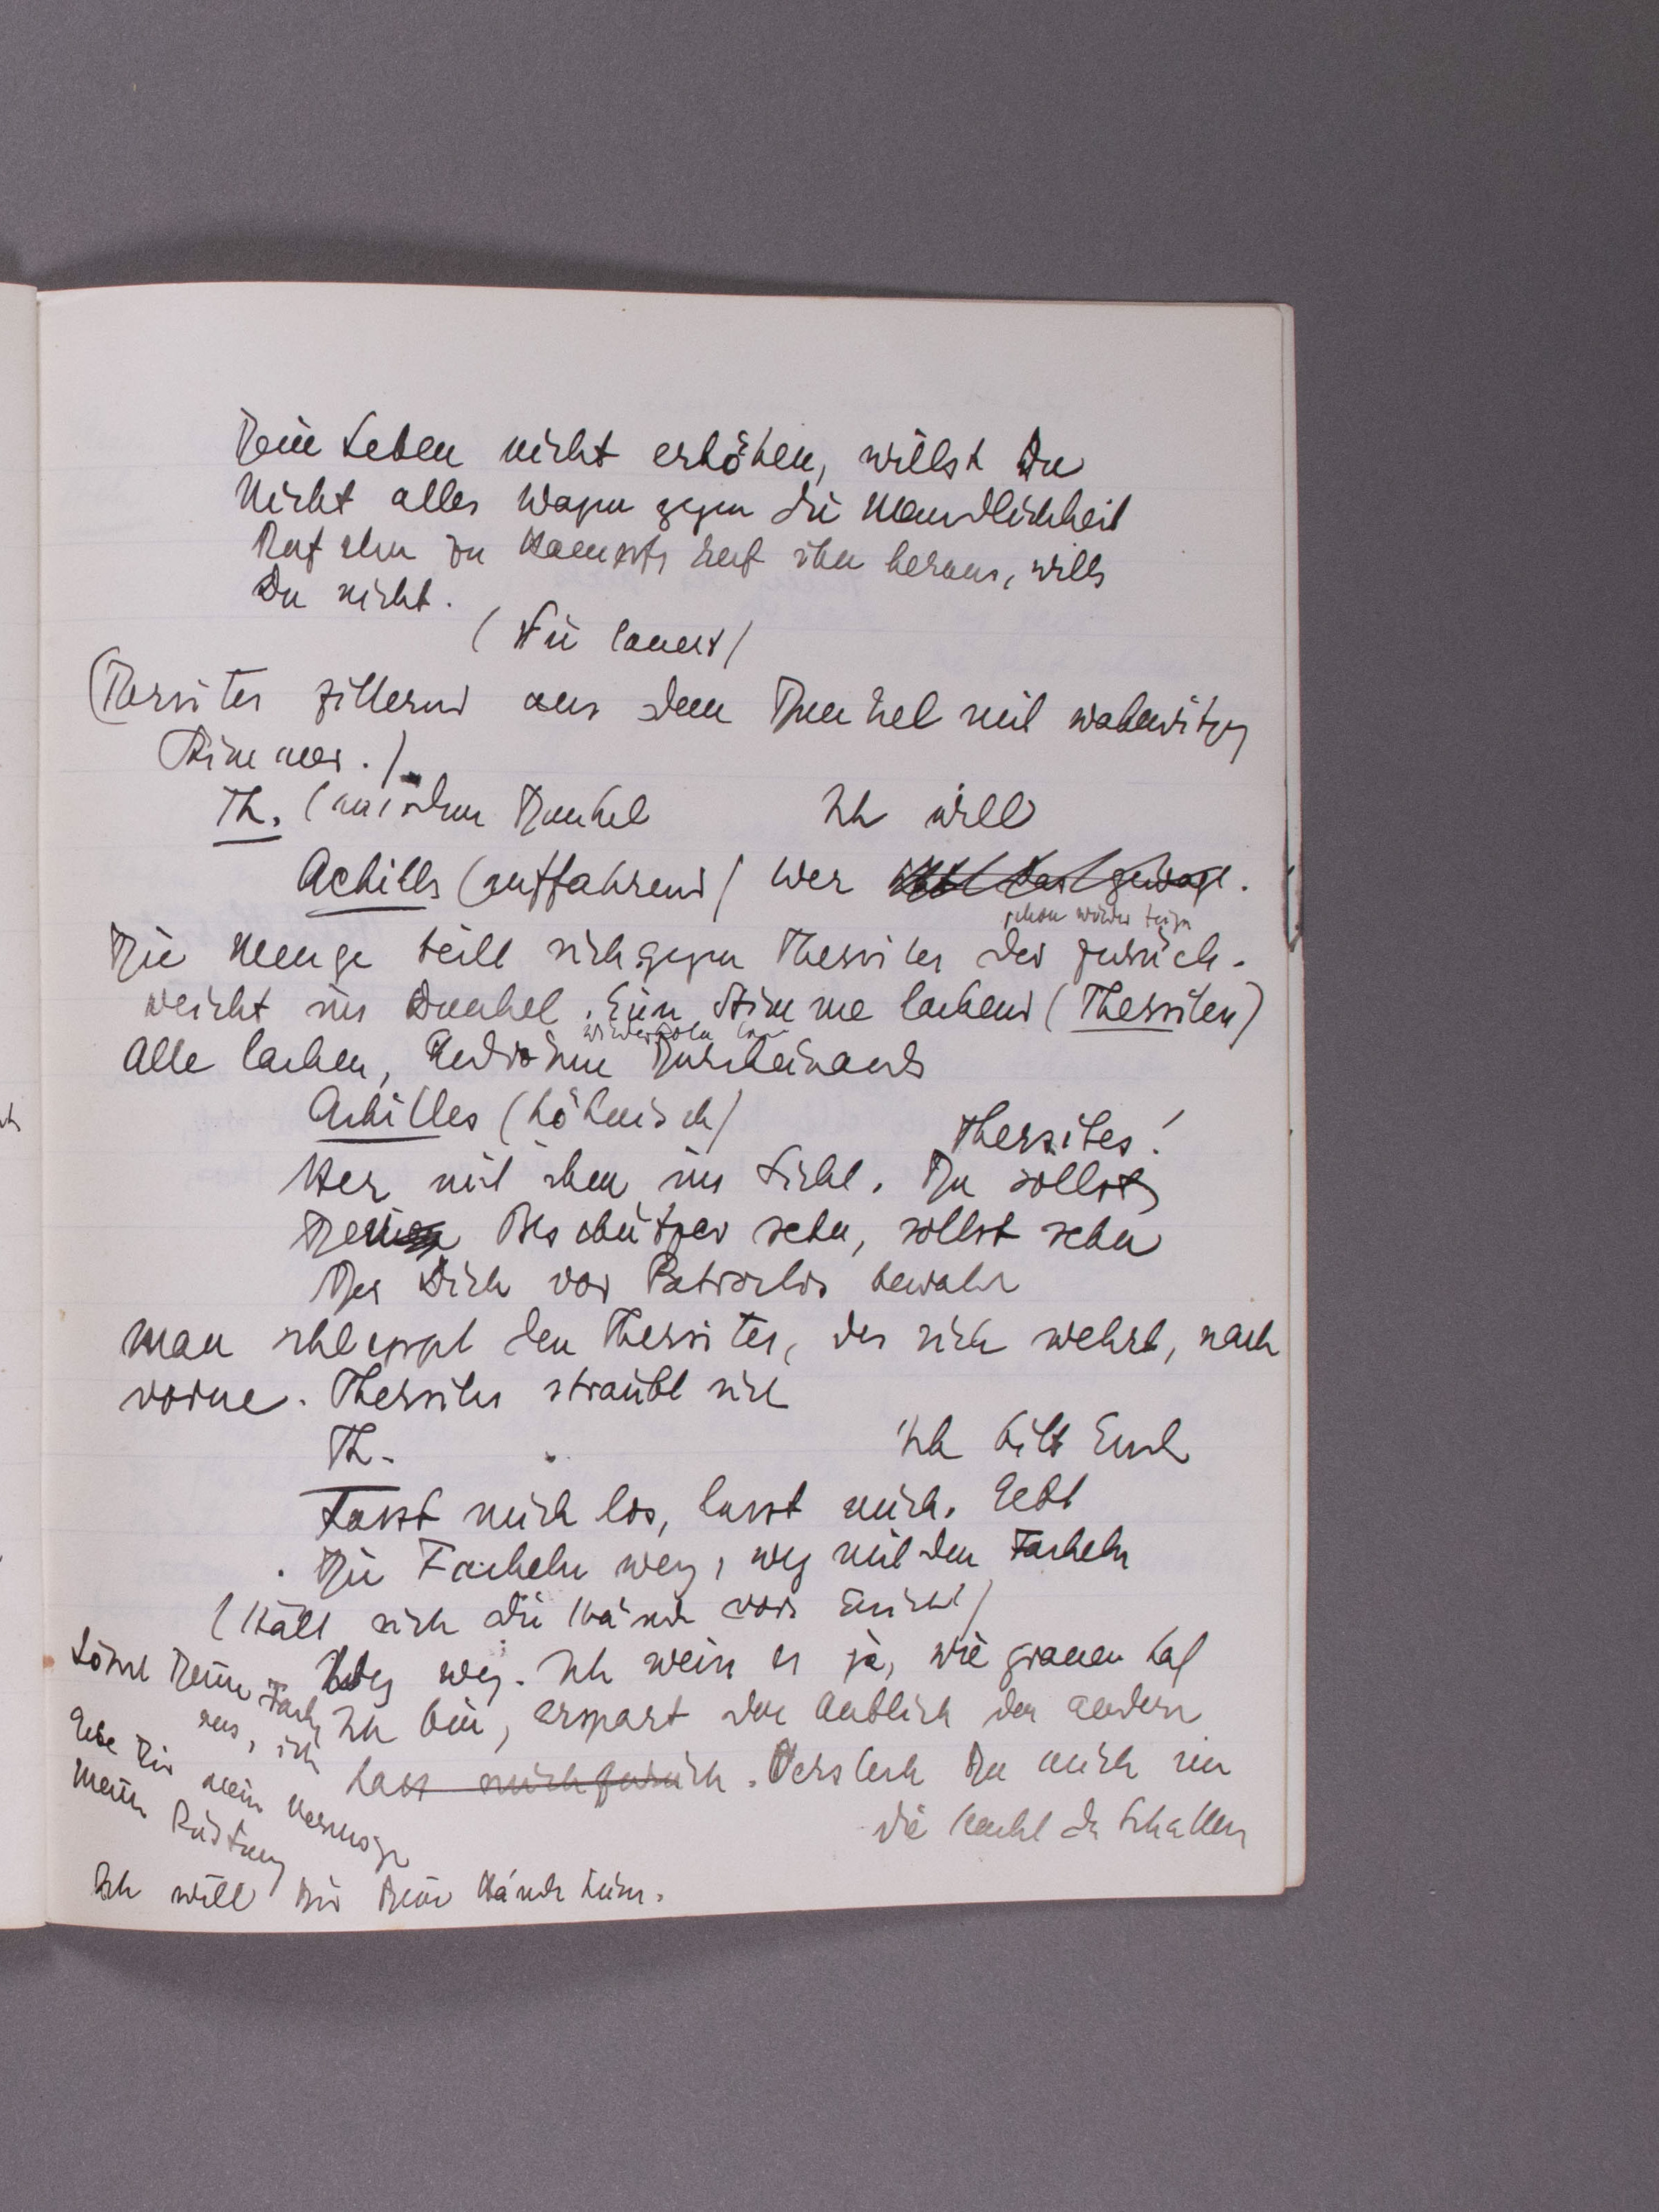 Dein Leben nicht erhöhen, willst Du
Nicht alles wagen gegen die Unendlichkeit
Ruf ihn zu Kampf, ruf ihn heraus, wills
Du nicht.
(Sie lauert)
(Thersites zitternd aus dem Dunkel mit wahnwitzger
Stimme.)
Th. (aus dem Dunkel Ich will
Achills (auffahrend) Wer hat das gewagt.
schon wieder feige
Die Menge teilt sich gegen Thersites der zurück-
weicht ins Dunkel. Eine Stimme lachend (Thersiten)
wiederholen
Alle lachen, Gedröhne Durcheinander
Achilles (höhnisch)
Thersites!
Her mit ihm ins Licht. Du sollst
Den Beschützer sehn, sollst sehn
Der Dich vor Patroclos bewahr
Man schleppt den Thersites, der sich wehrt, nach
vorne. Thersites sträubt sich
Th. Ich bitt Euch
Lasst mich los, lasst mich. Gebt
Die Fackeln weg, weg mit den Fackeln
(Hält sich die Hände vors Gesicht)
Weg weg. Ich weiss es ja, wie grauenhaf
Ich bin, erspart den Anblick den andern
Lass mich zurück. Versteck Du mich in
die Nacht der Schatten
Lösch Deine Fackel
aus, ich
Gebe Dir mein Vermöge
Meine Rüstung
Ich will Dir Deine Hände küssn.